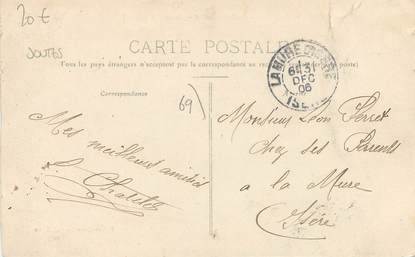 20 €
CARTE POSTALE
Tous les pays étrangers n'acceptent pas la correspondance au
Correspondance
69)
LA MURE
6E 31
DEC
06
ISERE
Mes meilleures amitiés
Monsieur Léon Perret
Chez ses Parents
a la Mure
Isère